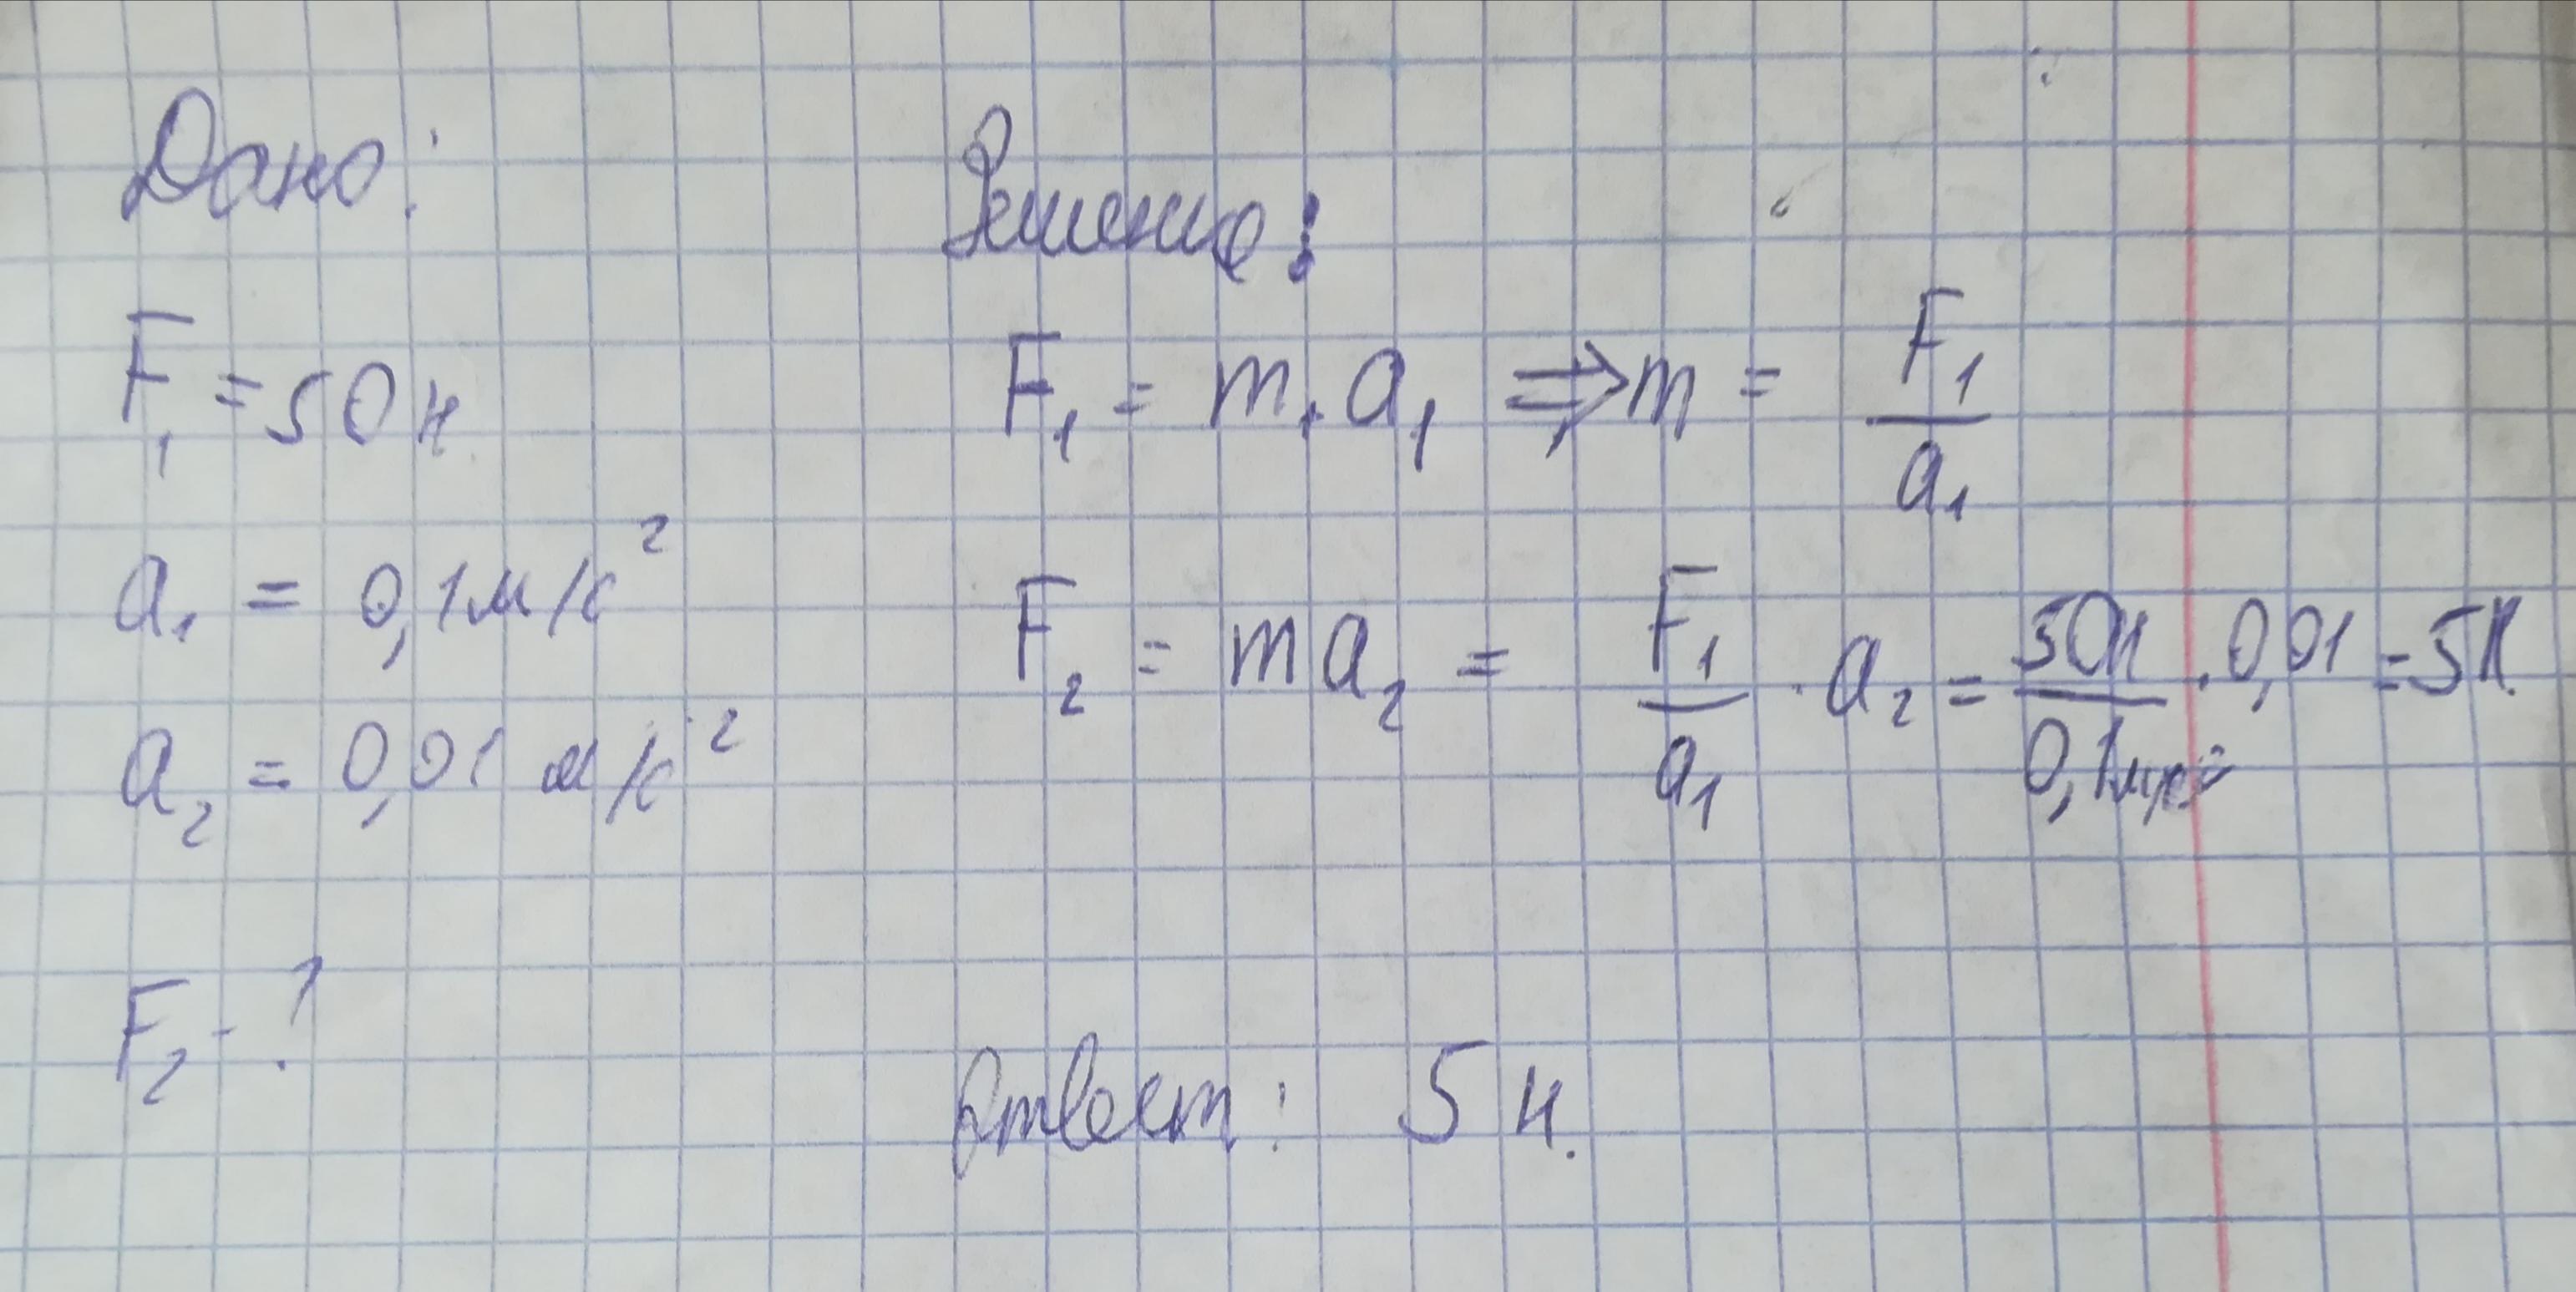 Дано:
F₁ = 50 н
a₁ = 0,1 м/с²
a₂ = 0,01 м/с²
F₂ - ?
Решение:
F₁ = m · a₁ ⇒ m = F₁/a₁
F₂ = m a₂ = F₁/a₁ · a₂ = 50н/0,1м/с² · 0,01 = 5Н
Ответ: 5 н.